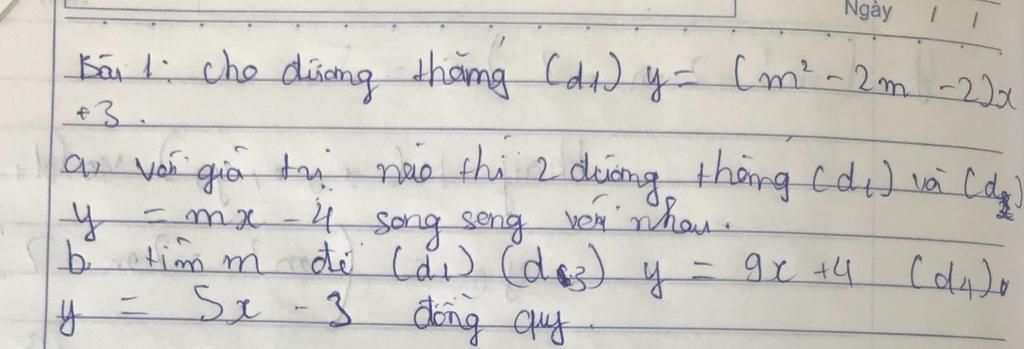 Ngày / /
Bài 1: Cho đường thẳng (d₁) y = (m² - 2m - 2)x
+3.
a, với giá trị nào thì 2 đường thẳng (d₁) và (d₂)
y = mx - 4 song seng với nhau.
b, tìm m để (d₁) (d₃) y = 9x + 4 (d₄),
y = 5x - 3 đồng quy.